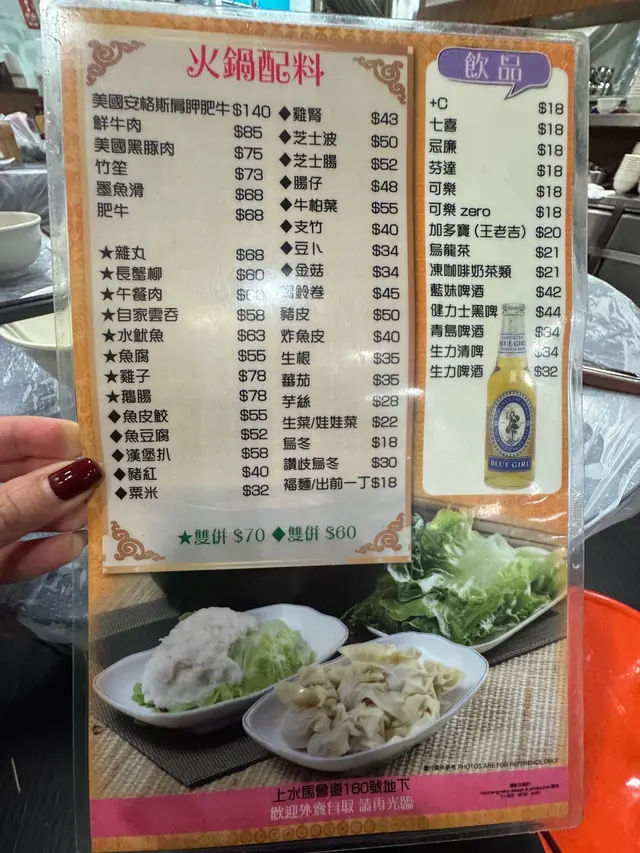 火鍋配料
美國安格斯肩胛肥牛 $140
鮮牛肉 $85
美國黑豚肉 $75
竹笙 $73
墨魚滑 $68
肥牛 $68
★雜丸 $68
★長蟹柳 $60
★午餐肉 $60
★自家雲吞 $58
★水魷魚 $63
★魚腐 $55
★雞子 $78
★鵝腸 $78
◆魚皮餃 $55
◆魚豆腐 $52
◆漢堡扒 $58
◆豬紅 $40
◆粟米 $32
◆雞腎 $43
◆芝士波 $50
◆芝士腸 $52
◆腸仔 $48
◆牛柏葉 $55
◆支竹 $40
◆豆卜 $34
◆金菇 $34
鈴卷 $45
豬皮 $50
炸魚皮 $40
生根 $35
蕃茄 $35
芋絲 $28
生菜/娃娃菜 $22
烏冬 $18
讚岐烏冬 $30
福麵/出前一丁 $18
★雙併 $70 ◆雙併 $60
飲品
+C $18
七喜 $18
忌廉 $18
芬達 $18
可樂 $18
可樂 zero $18
加多寶 (王老吉) $20
烏龍茶 $21
凍咖啡奶茶類 $21
藍妹啤酒 $42
健力士黑啤 $44
青島啤酒 $34
生力清啤 $34
生力啤酒 $32
BLUE GIRL
BLUE GIRL
圖片只供參考 PHOTOS ARE FOR REFERENCE ONLY
上水馬會道160號地下
歡迎外賣自取 請再光臨